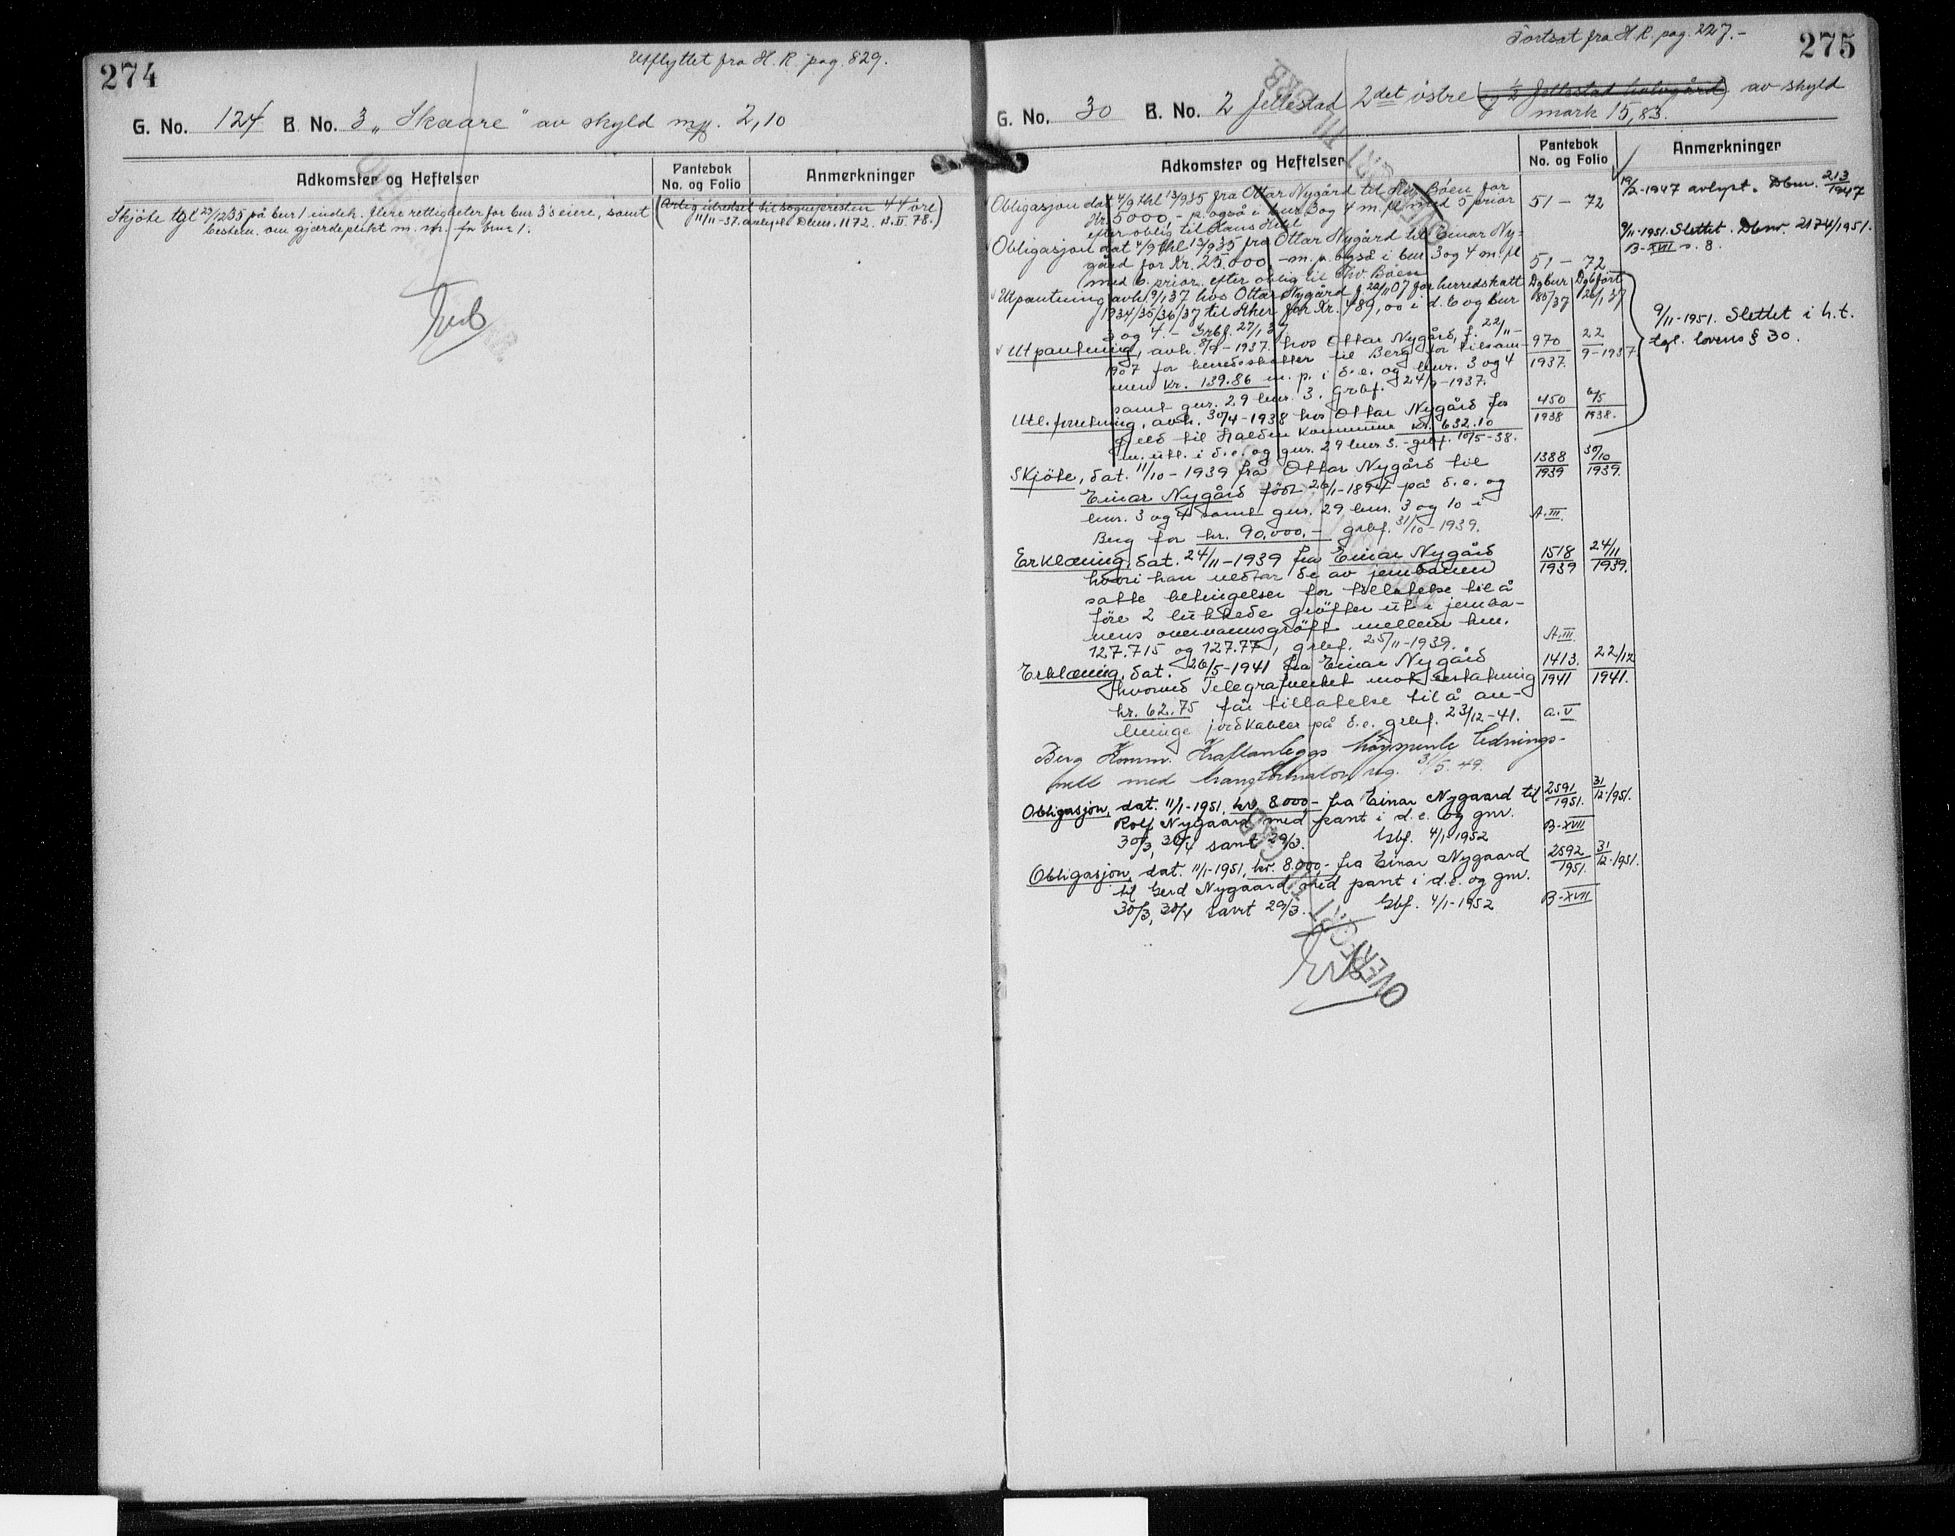 274
Utflyttet fra H. R. pag. 829.
G. No. 124 B. No. 3 „Skaare" av skyld mk. 2,10
Adkomster og Heftelser
Pantebok
No. og Folio
Anmerkninger
Skjøte tgl 27/12 35 på bnr 1 indeh. flere rettigheter for bnr 3's eiere, samt
bestem. om gjærdeplikt m. m. for bnr 1.
(Årlig utredsel til sognepresten 44 øre
11/11-37. avlyst Dbnr. 1172. A.II 78.)
275
Fortsat fra H. R. pag. 227.-
G. No. 30 B. No. 2 Jellestad 2det østre (og 1/2 Jellestad halvgård) av skyld
mark 15,83.
OVERFØRT TIL GRB
Adkomster og Heftelser
Pantebok
No. og Folio
Anmerkninger
Obligasjon dat 4/9 thl 13/9 35 fra Ottar Nygård til Bøen for
Kr. 5000,- p. også i bnr 3 og 4 m. pl med 5 prior 51 - 72
efter oblig til Hans
19/2-1947 avlyst. Dbnr. 213/1947
Obligasjon dat 4/9 thl 13/9 35 fra Ottar Nygård til Einar Ny-
gård for Kr. 25.000,- m. p. også i bnr 3 og 4 m. pl 51 - 72
med 6. prior. efter oblig til Bøen
9/11-1951. Slettet. Dbnr. 2174/1951.
B-XVII s. 8.
Utpantning avh 19/1 37 hos Ottar Nygård f 22/11 07 for herredskatt
1934/35/36/37 til Kr. 489,00 i d. e og bnr
3 og 4. - Grbf. 27/1 37
Dgbnr 80/37 Dgbført 26/1 37
Utpantning, avh. 8/9-1937. hos Ottar Nygård, f. 22/11-
1907 for herredsskatter til Berg for tilsam-
men kr. 139.86 m. p. i d. e. og bnr. 3 og 4
samt gnr. 29 bnr. 3. Grbf. 24/9-1937.
970/1937. 22/9-1937
Utl. forretning, avh. 30/4-1938 hos Ottar Nygård for
gjeld til Halden Kommune kr. 632.10
m. utl. i d. e. og gnr. 29 bnr. 3. - grbf. 10/5-38.
450/1938 6/5/1938.
9/11-1951. Slettet i h. t.
tgl. lovens § 30.
Skjøte, dat. 11/10-1939 fra Ottar Nygård til
Einar Nygård født 26/1-1894 på d. e. og
bnr. 3 og 4 samt gnr. 29 bnr. 3 og 10 i
Berg for kr. 90.000,- grbf. 31/10-1939.
1388/1939 30/10/1939.
A.III.
Erklæring, dat. 24/11-1939 fra Einar Nygård
hvori han vedtar de av jernbanen
satte betingelser for tillatelse til å
føre 2 lukkede grøfter ut i jernba-
nens overvannsgrøft mellem km.
127.715 og 127.77, grbf. 25/11-1939.
1518/1939 24/11/1939.
A.III
Erklæring, dat. 26/5-1941 fra Einar Nygård
hvorved Telegrafverket mot erstatning
kr. 62.75 får tillatelse til å an-
bringe jordkabler på d. e. grbf. 23/12-41.
1413./1941 22/12/1941.
A.V
Berg Komm. Kraftanleggs høyspente lednings-
nett med transformator reg. 31/5. 49.
Obligasjon, dat. 11/1-1951, kr. 8.000,- fra Einar Nygaard til
Rolf Nygaard med pant i d. e. og gnr.
30/3, 30/4 samt 29/3. Gbf. 4/1-1952
2591/1951. 31/12-1951.
B-XVII
Obligasjon, dat. 11/1-1951, kr. 8.000,- fra Einar Nygaard
til Gerd Nygaard med pant i d. e. og gnr.
30/3, 30/4 samt 29/3. Gbf. 4/1-1952
2592/1951. 31/12-1951.
B-XVII
OVERFØRT TIL GRB